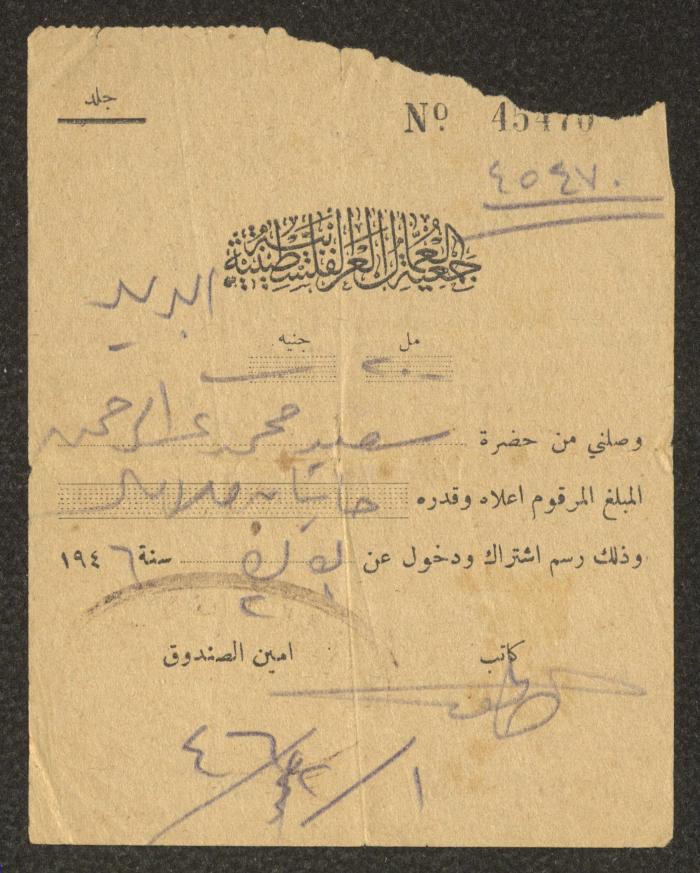 جلد
Nº 45470
٤٥٤٧٠
جمعية العمال العربية الفلسطينية
البريد
مل جنيه
٢٠٠ —
وصلني من حضرة سعيد محمد عبد الرحمن
المبلغ المرقوم اعلاه وقدره مايتان ملا
وذلك رسم اشتراك ودخول عن ك١ ك٢ سنة ١٩٤٦
كاتب امين الصندوق
٤٦/ /١